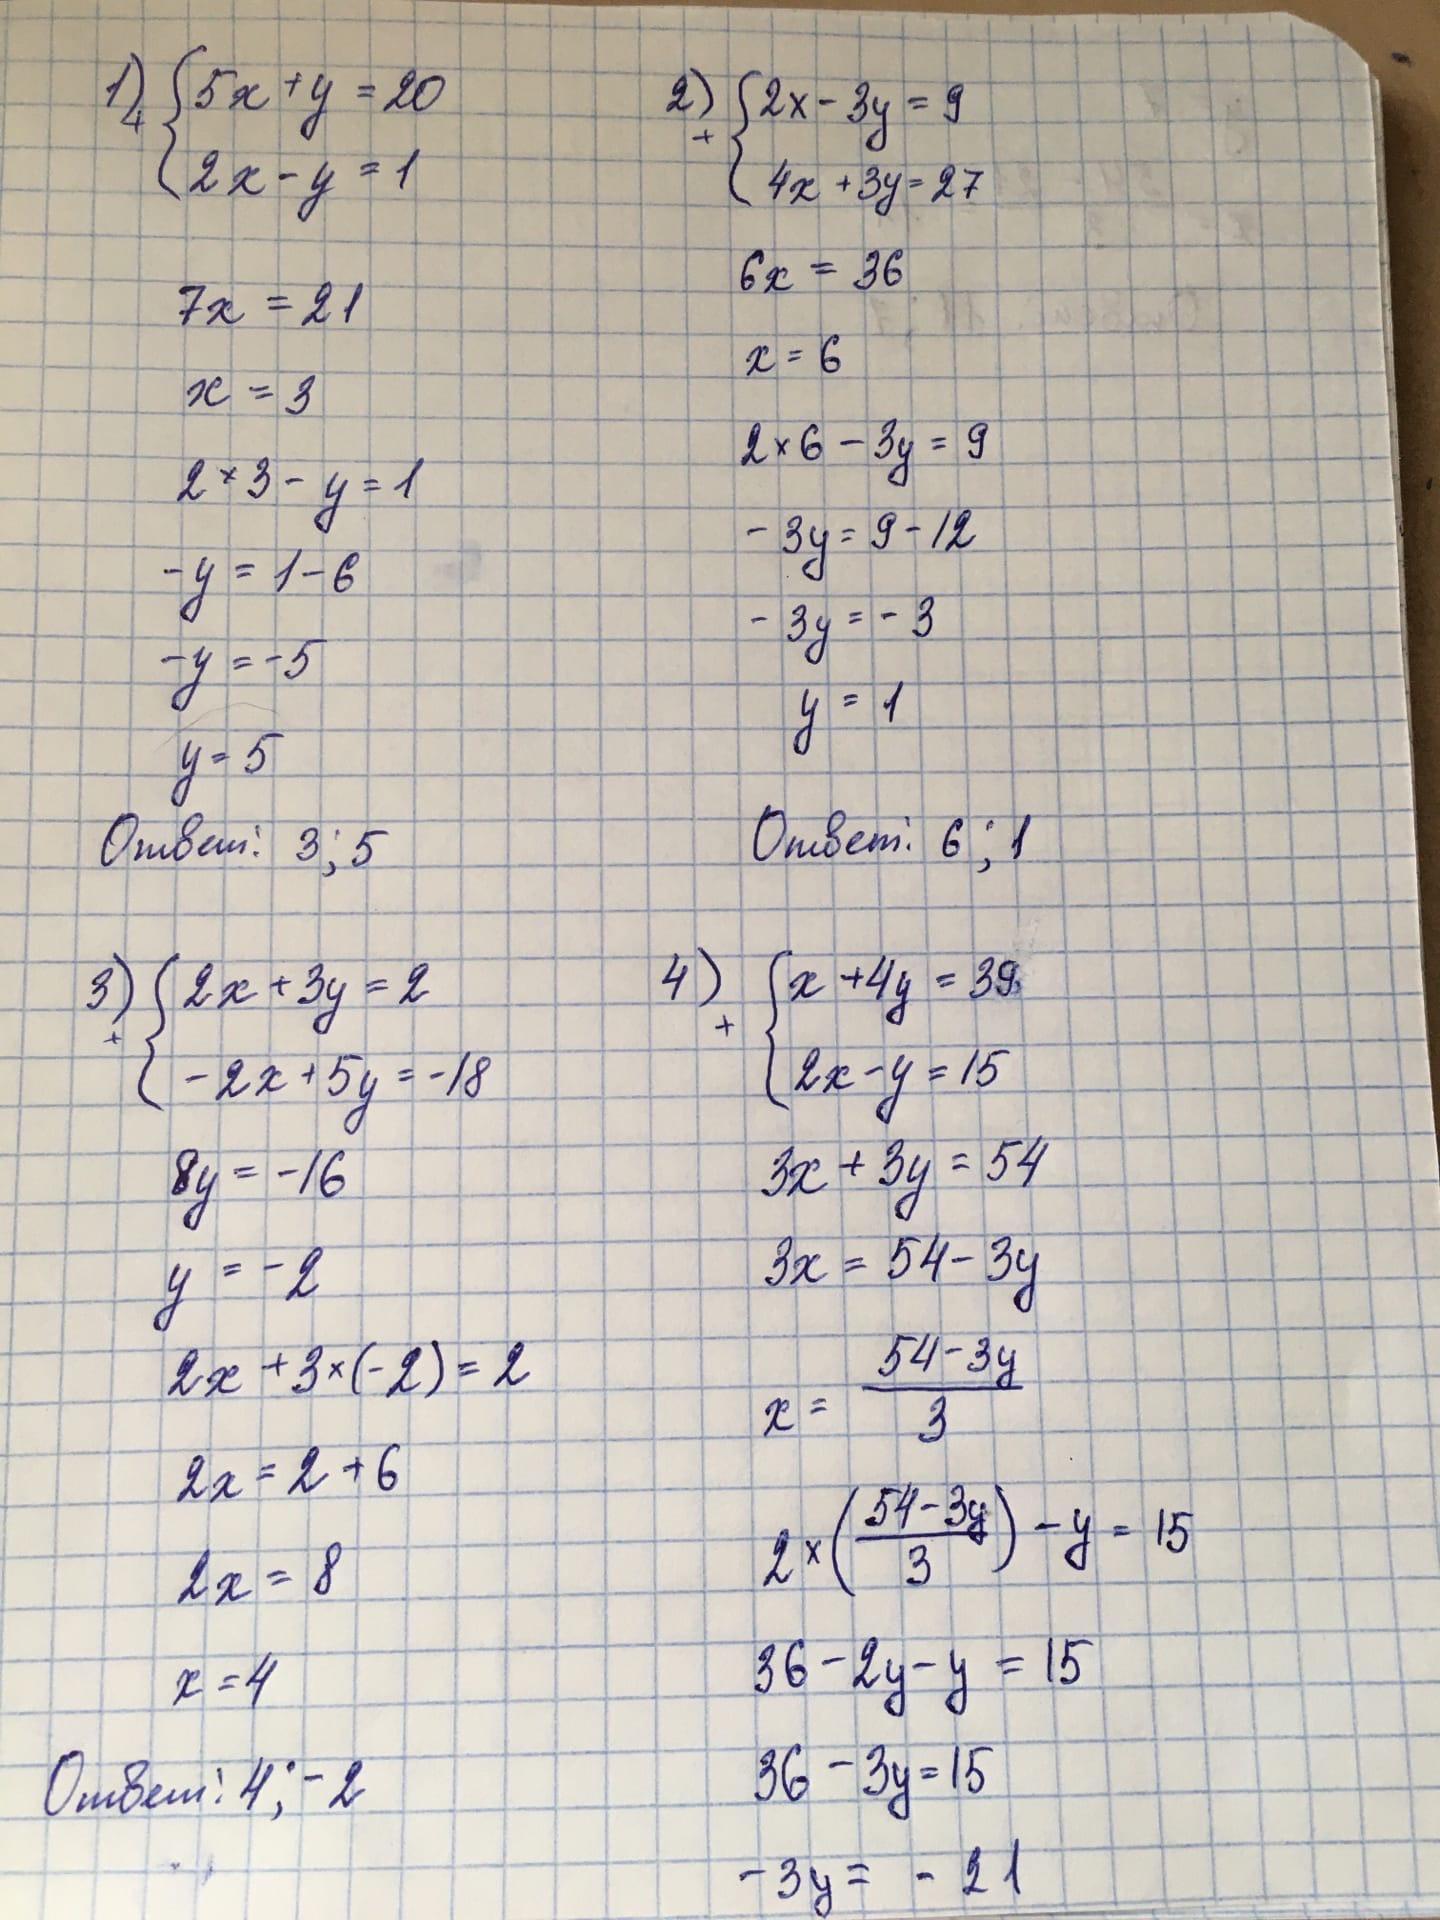 1) + { 5x + y = 20
2x - y = 1
7x = 21
x = 3
2 × 3 - y = 1
-y = 1 - 6
-y = -5
y = 5
Ответ: 3; 5
2) + { 2x - 3y = 9
4x + 3y = 27
6x = 36
x = 6
2 × 6 - 3y = 9
-3y = 9 - 12
-3y = -3
y = 1
Ответ: 6; 1
3) + { 2x + 3y = 2
-2x + 5y = -18
8y = -16
y = -2
2x + 3 × (-2) = 2
2x = 2 + 6
2x = 8
x = 4
Ответ: 4; -2
4) + { x + 4y = 39
2x - y = 15
3x + 3y = 54
3x = 54 - 3y
x = (54 - 3y)/3
2 × ((54 - 3y)/3) - y = 15
36 - 2y - y = 15
36 - 3y = 15
-3y = -21